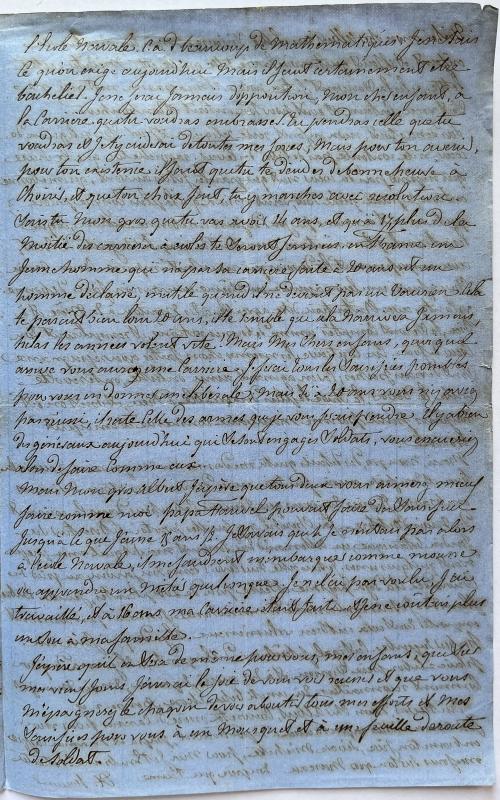 l'école navale. Il a d beaucoup de Mathematiques. Je ne sais
le qu'on exige aujourd'hui mais il faut certainement être
bachelier. Je ne ferai jamais d'opposition, mon cher enfant, à
la Carrière que tu voudras embrasser. Tu prendras celle que tu
voudras et je t'y aiderai de toutes mes forces, Mais pour ton avenir,
pour ton existence il faut que tu te decides de bonne heure à
choisir, et que ton choix fait, tu y marches avec resolution.
Sais tu Mon gros que tu vas avoir 14 ans, et qu'à 17 plus de la
Moitié des carrières à écoles te seront fermées. en France un
Jeune homme qui n'a pas sa carrière faite à 20 ans est un
homme déclassé, inutile quand il ne devient pas un vaurien. Cela
te parait bien loin 20 ans, il te semble que cela n'arrivera Jamais
hélas les années volent vite! Mais Mes Chers enfans, quoiqu'il
arrive vous aurez une Carrière. Je fais tous les sacrifices possibles
pour vous en donner une liberale, mais si à 20 ans vous n'y avez
pas reussi, il reste celle des armes que je vous ferai prendre. il y a bien
des généraux aujourd'hui qui se sont engagés Soldats, vous en seriez
alors de faire comme eux.
Mais Mon gros Albert J'espère que tous deux vous aimerez mieux
faire comme moi. papa pouvait faire des sacrifices
Jusqu'à ce que J'aurai 18 ans. Je savais que si je n'étais pas alors
à l'école Navale, il me faudrait m'embarquer comme mousse
ou apprendre un métier quelconque. Je ne l'ai pas voulu, J'ai
travaillé, et à 16 ans ma Carrière était faite. Et je ne coûtais plus
un sou à ma famille.
J'espère qu'il en sera de même pour vous, mes enfans, que sur
mes vieux Jours J'aurai la joie de vous voir reunis et que vous
M'épargnerez le chagrin de voir aboutir tous mes efforts et Mes
sacrifices pour vous à un Mousquet et à une feuille de route
de Soldat.